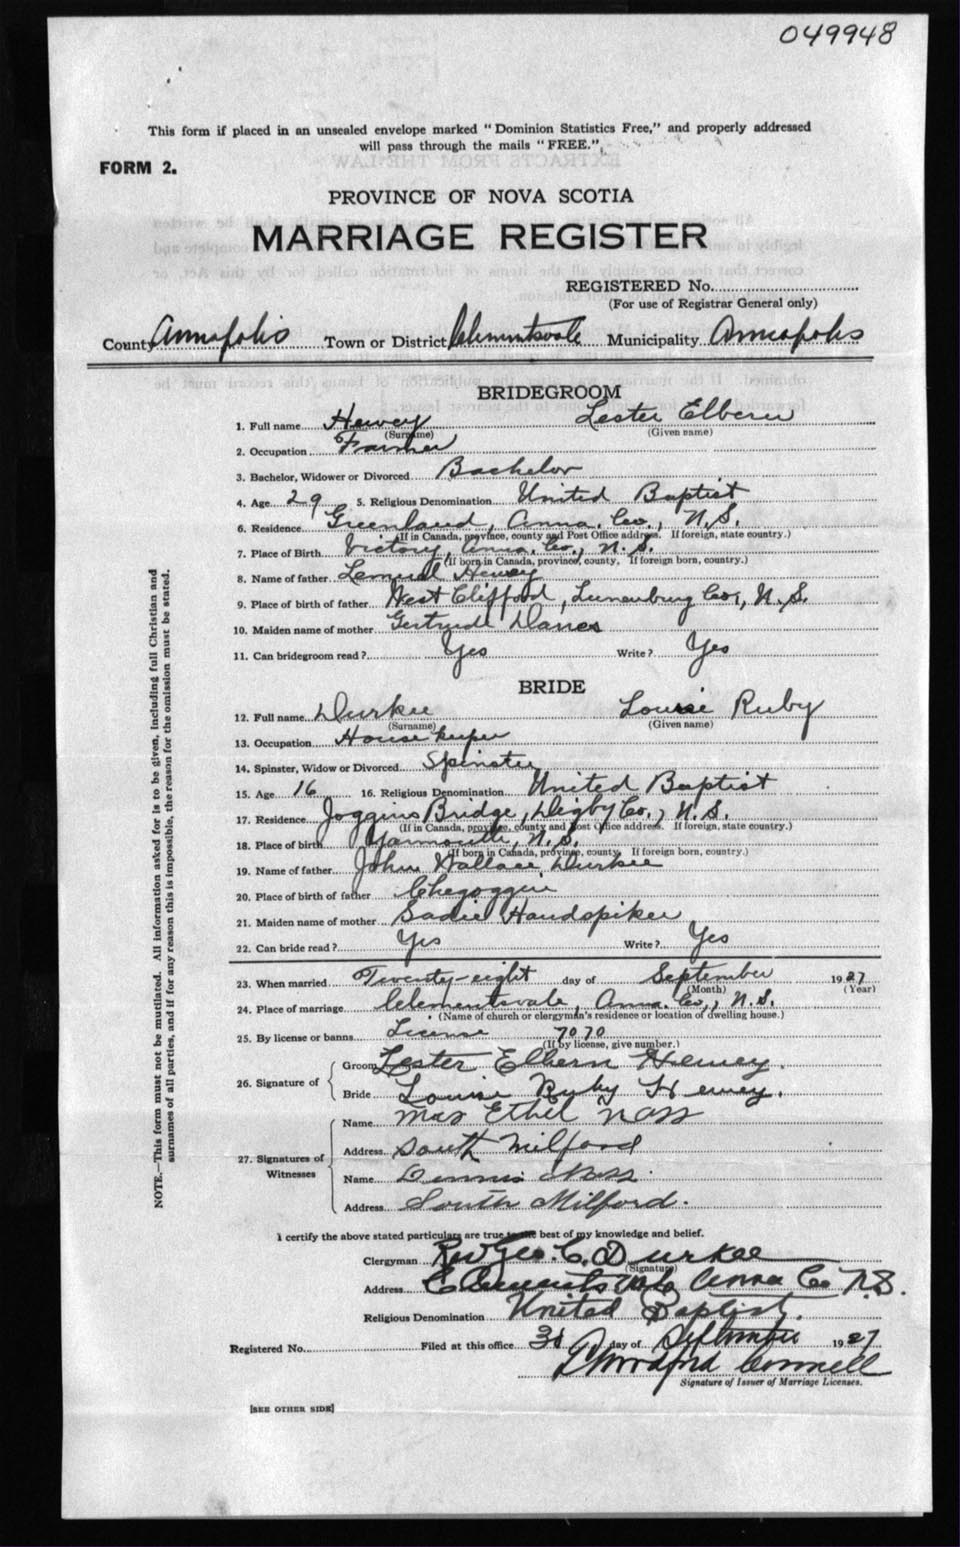 049948
This form if placed in an unsealed envelope marked “Dominion Statistics Free,” and properly addressed
will pass through the mails “FREE.”
FORM 2.
PROVINCE OF NOVA SCOTIA
MARRIAGE REGISTER
REGISTERED No.
(For use of Registrar General only)
County Annapolis Town or District Clementsvale Municipality Annapolis
BRIDEGROOM
1. Full name Hewey Lester Elbern
(Surname) (Given name)
2. Occupation Farmer
3. Bachelor, Widower or Divorced Bachelor
4. Age 29 5. Religious Denomination United Baptist
6. Residence Greenland, Anna. Co., N.S.
(If in Canada, province, county and Post Office address. If foreign, state country.)
7. Place of Birth Victory, Anna. Co., N.S.
(If born in Canada, province, county. If foreign born, country.)
8. Name of father Lemuel Hewey
9. Place of birth of father West Clifford, Lunenburg Co., N.S.
10. Maiden name of mother Gertrude
11. Can bridegroom read? Yes Write? Yes
BRIDE
12. Full name Durkee Louise Ruby
(Surname) (Given name)
13. Occupation Housekeeper
14. Spinster, Widow or Divorced Spinster
15. Age 16 16. Religious Denomination United Baptist
17. Residence Joggins Bridge, Digby Co., N.S.
(If in Canada, province, county and Post Office address. If foreign, state country.)
18. Place of birth Yarmouth, N.S.
(If born in Canada, province, county. If foreign born, country.)
19. Name of father John Wallace Durkee
20. Place of birth of father Chegoggin
21. Maiden name of mother Sadie Handspiker
22. Can bride read? Yes Write? Yes
23. When married Twenty-eight day of September 1927
(Month) (Year)
24. Place of marriage Clementsvale, Anna. Co., N.S.
(Name of church or clergyman's residence or location of dwelling house.)
25. By license or banns License 7070
(If by license, give number.)
26. Signature of
Groom Lester Elbern Hewey.
Bride Louise Ruby Hewey.
27. Signatures of Witnesses
Name Mrs Ethel Nass
Address South Milford
Name Dennis Nass.
Address South Milford.
I certify the above stated particulars are true to the best of my knowledge and belief.
Clergyman Rev Geo. C. Durkee
(Signature)
Address Clementsvale Anna Co N.S.
Religious Denomination United Baptist.
Registered No. Filed at this office 30 day of September 1927
Signature of Issuer of Marriage Licenses.
[SEE OTHER SIDE]
NOTE.—This form must not be mutilated. All information asked for is to be given, including full Christian and
surnames of all parties, and if for any reason this is impossible, the reason for the omission must be stated.